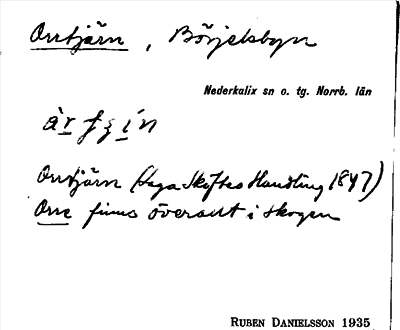 Orrtjärn, Börjelsbyn
Nederkalix sn o. tg. Norrb. län
Orrtjärn (Laga Skiftes Handling 1847)
Orre finns överallt i skogen
RUBEN DANIELSSON 1935